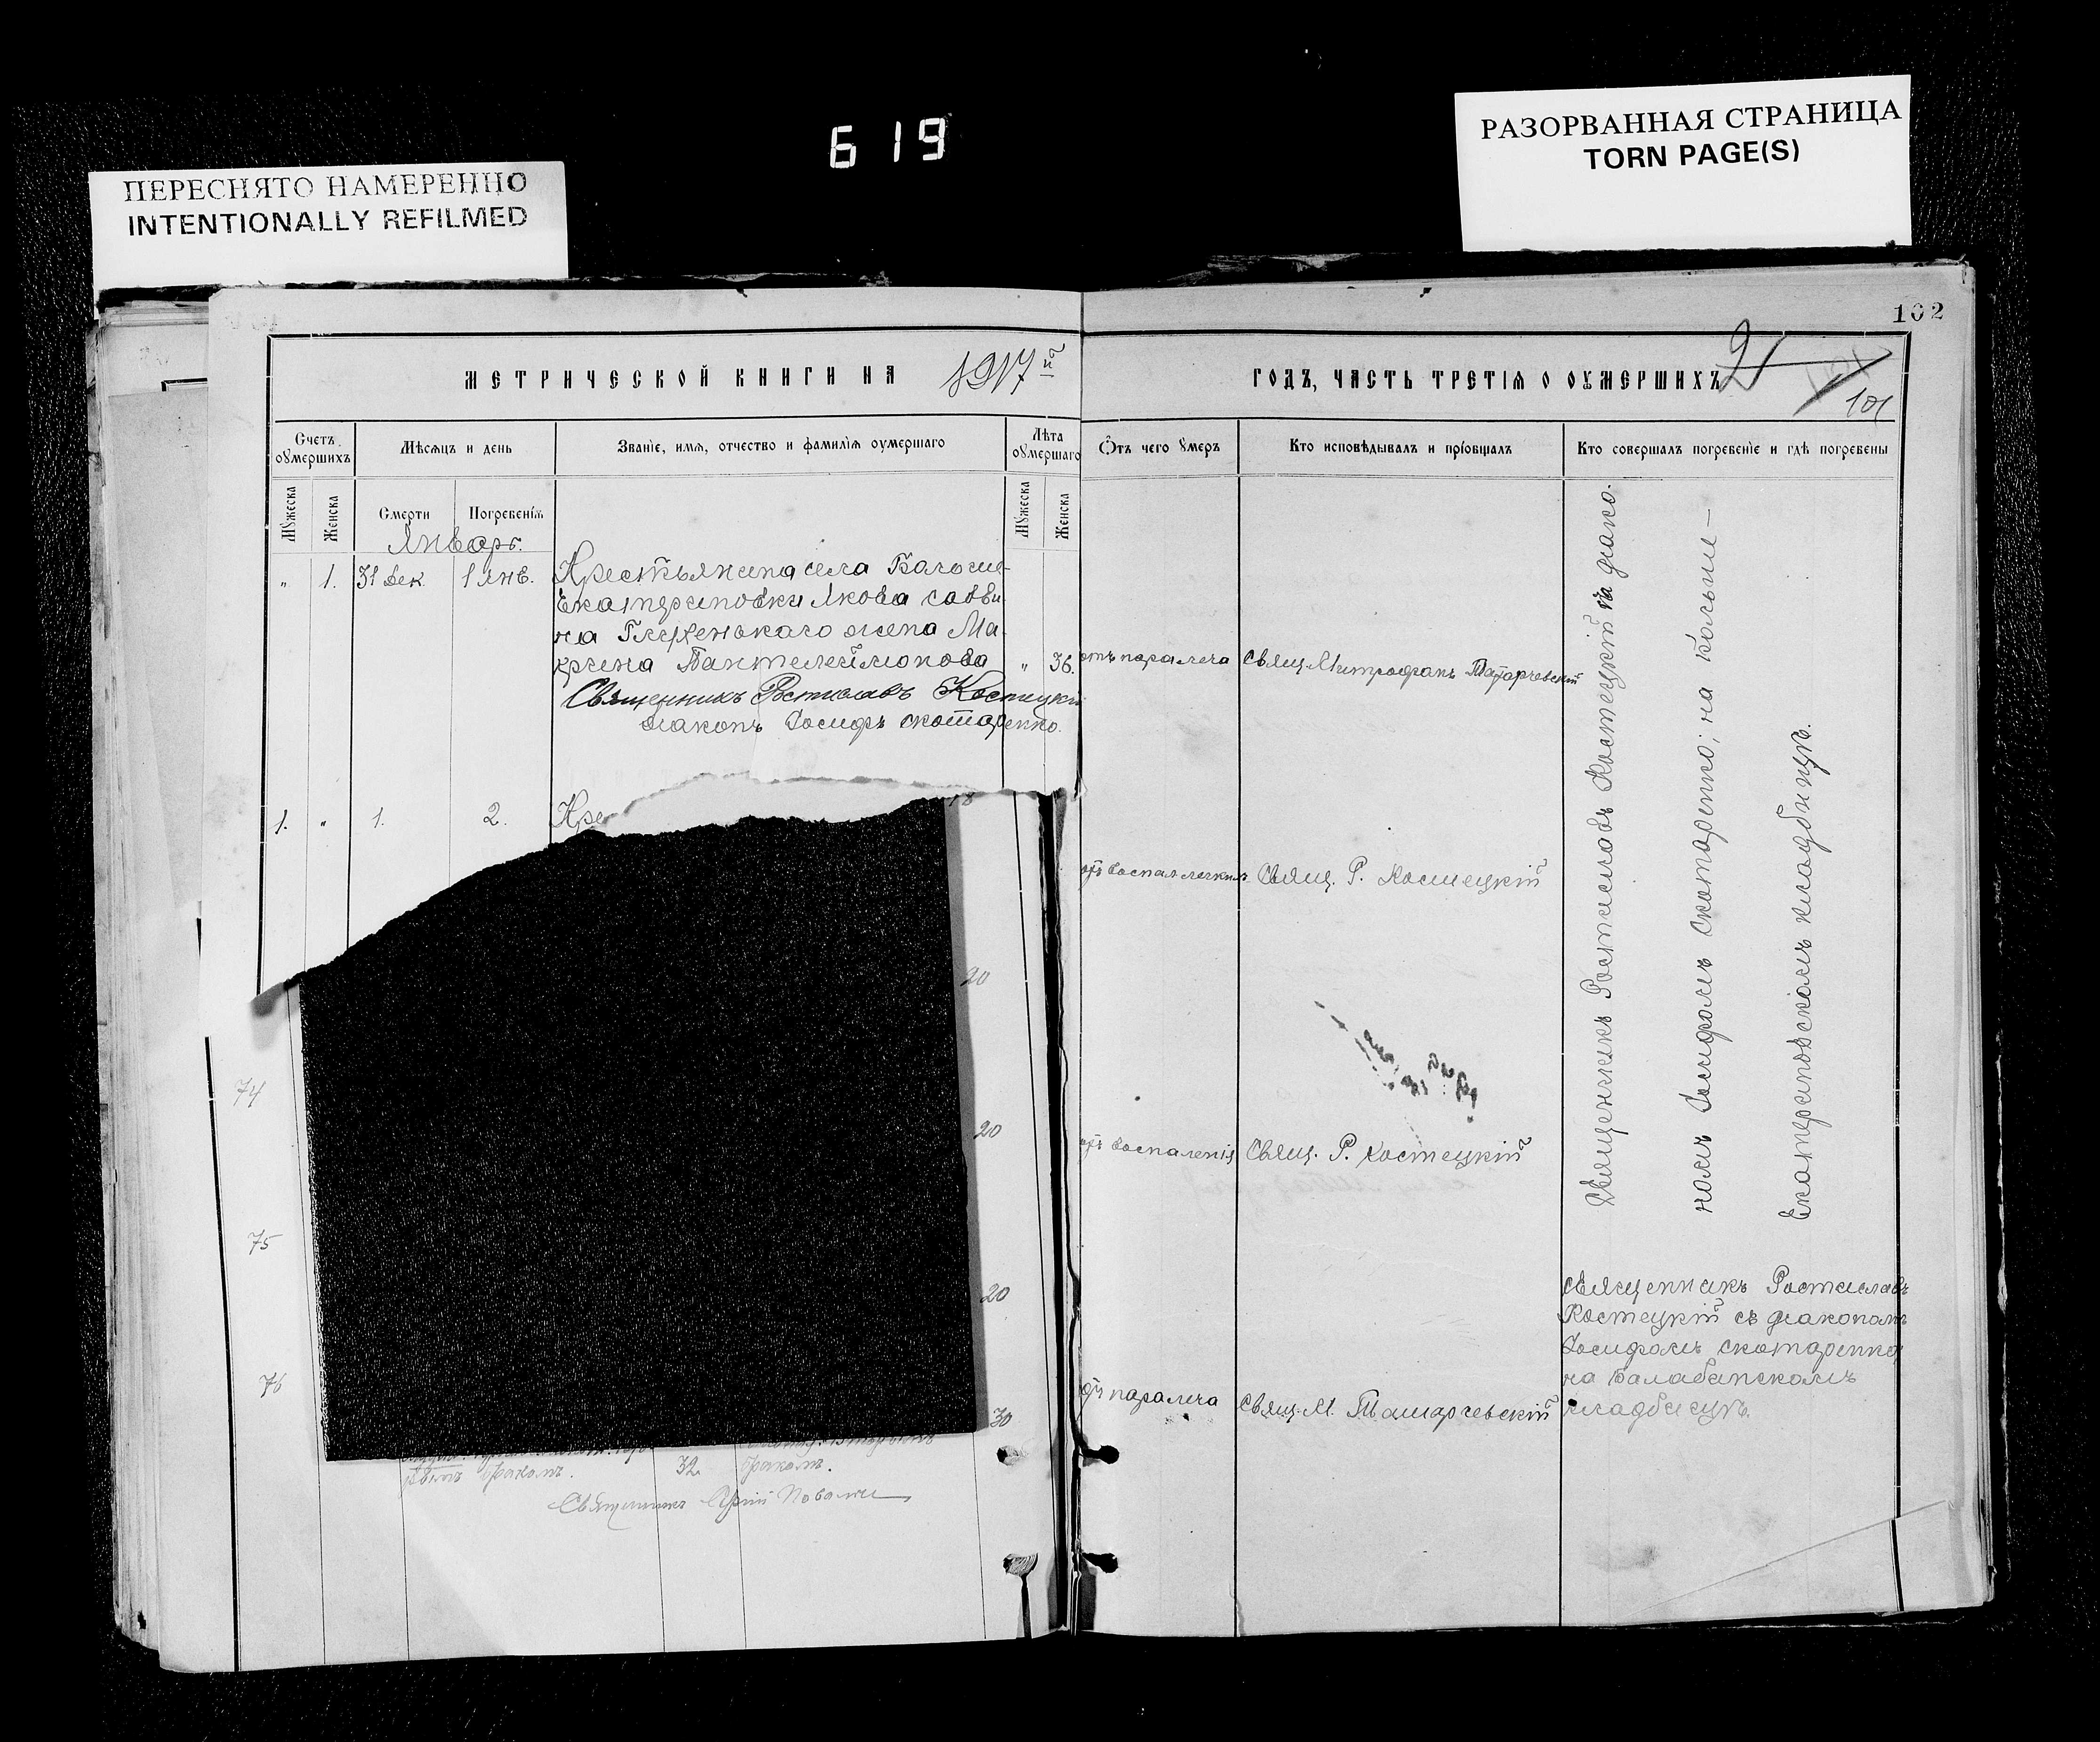 619
ПЕРЕСНЯТО НАМЕРЕННО
INTENTIONALLY REFILMED
РАЗОРВАННАЯ СТРАНИЦА
TORN PAGE(S)
102
МЕТРИЧЕСКОЙ КНИГИ НА 1917й
ГОДЪ, ЧАСТЬ ТРЕТІЯ О ОУМЕРШИХЪ
21
101
Счетъ оумершихъ
Мѣсяцъ и день
Званіе, имя, отчество и фамилія оумершаго
Лѣта оумершаго
Отъ чего умеръ
Кто исповѣдывалъ и пріобщалъ
Кто совершалъ погребеніе и гдѣ погребены
Мужеска
Женска
Смерти
Погребенія
Мужеска
Женска
Январь.
" 1. 31 Дек. 1 Янв. Крестьянина села
Екатериновки Якова Савви-
на жена Ма-
крина Пантелеймонова " 36. отъ паралича Свящ. Митрофанъ Татарчевскій
Священникъ Ростиславъ Костецкій
діаконъ Іосифъ Скотаренко.
1. " 1. 2. Кре
отъ воспал легкихъ Свящ. Р. Костецкій
отъ воспаленія Свящ. Р. Костецкій
отъ паралича Свящ. М. Татарчевскій
Священникъ Ростиславъ Костецкій съ діако-
номъ Іосифомъ Скотаренко; на Больше-
Екатериновскомъ кладбищѣ.
Священникъ Ростиславъ
Костецкій съ діакономъ
Іосифомъ Скотаренко
на Балабанскомъ
кладбищѣ.
20
74
20
75
20
76
30
бракомъ. 32. бракомъ.
Священникъ